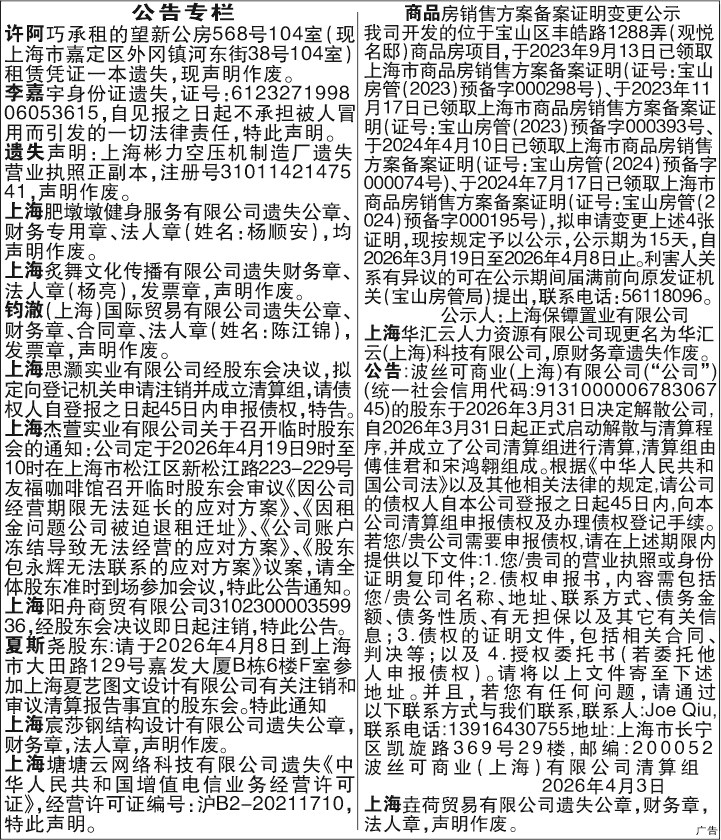 公告专栏
许阿巧承租的望新公房568号104室(现
上海市嘉定区外冈镇河东街38号104室)
租赁凭证一本遗失,现声明作废。
李嘉宇身份证遗失,证号:6123271998
06053615,自见报之日起不承担被人冒
用而引发的一切法律责任,特此声明。
遗失声明:上海彬力空压机制造厂遗失
营业执照正副本,注册号3101142147​5
41,声明作废。
上海肥墩墩健身服务有限公司遗失公章、
财务专用章、法人章(姓名:杨顺安),均
声明作废。
上海炙舞文化传播有限公司遗失财务章、
法人章(杨亮),发票章,声明作废。
钧澈(上海)国际贸易有限公司遗失公章、
财务章、合同章、法人章(姓名:陈江锦),
发票章,声明作废。
上海思灏实业有限公司经股东会决议,拟
定向登记机关申请注销并成立清算组,请债
权人自登报之日起45日内申报债权,特告。
上海杰萱实业有限公司关于召开临时股东
会的通知:公司定于2026年4月19日9时至
10时在上海市松江区新松江路223-229号
友福咖啡馆召开临时股东会审议《因公司
经营期限无法延长的应对方案》、《因租
金问题公司被迫退租迁址》、《公司账户
冻结导致无法经营的应对方案》、《股东
包永辉无法联系的应对方案》议案,请全
体股东准时到场参加会议,特此公告通知。
上海阳舟商贸有限公司3102300003599
36,经股东会决议即日起注销,特此公告。
夏斯尧股东:请于2026年4月8日到上海
市大田路129号嘉发大厦B栋6楼F室参
加上海夏艺图文设计有限公司有关注销和
审议清算报告事宜的股东会。特此通知
上海宸莎钢结构设计有限公司遗失公章,
财务章,法人章,声明作废。
上海塘塘云网络科技有限公司遗失《中
华人民共和国增值电信业务经营许可
证》,经营许可证编号:沪B2-20211710,
特此声明。
商品房销售方案备案证明变更公示
我司开发的位于宝山区丰皓路1288弄(观悦
名邸)商品房项目,于2023年9月13日已领取
上海市商品房销售方案备案证明(证号:宝山
房管(2023)预备字000298号)、于2023年11
月17日已领取上海市商品房销售方案备案证
明(证号:宝山房管(2023)预备字000393号、
于2024年4月10日已领取上海市商品房销售
方案备案证明(证号:宝山房管(2024)预备字
000074号)、于2024年7月17日已领取上海市
商品房销售方案备案证明(证号:宝山房管(2
024)预备字000195号),拟申请变更上述4张
证明,现按规定予以公示,公示期为15天,自
2026年3月19日至2026年4月8日止。利害人关
系有异议的可在公示期间届满前向原发证机
关(宝山房管局)提出,联系电话:56118096。
公示人:上海保镡置业有限公司
上海华汇云人力资源有限公司现更名为华汇
云(上海)科技有限公司,原财务章遗失作废。
公告:波丝可商业(上海)有限公司(“公司”)
(统一社会信用代码:9131000006783067
45)的股东于2026年3月31日决定解散公司,
自2026年3月31日起正式启动解散与清算程
序,并成立了公司清算组进行清算,清算组由
傅佳君和宋鸿翱组成。根据《中华人民共和
国公司法》以及其他相关法律的规定,请公司
的债权人自本公司登报之日起45日内,向本
公司清算组申报债权及办理债权登记手续。
若您/贵公司需要申报债权,请在上述期限内
提供以下文件:1.您/贵司的营业执照或身份
证明复印件;2.债权申报书,内容需包括
您/贵公司名称、地址、联系方式、债务金
额、债务性质、有无担保以及其它有关信
息;3.债权的证明文件,包括相关合同、
判决等;以及 4.授权委托书(若委托他
人申报债权)。请将以上文件寄至下述
地址。并且,若您有任何问题,请通过
以下联系方式与我们联系,联系人:Joe Qiu,
联系电话:13916430755地址:上海市长宁
区凯旋路369号29楼,邮编:200052
波丝可商业(上海)有限公司清算组
2026年4月3日
上海垚荷贸易有限公司遗失公章,财务章,
法人章,声明作废。
广告